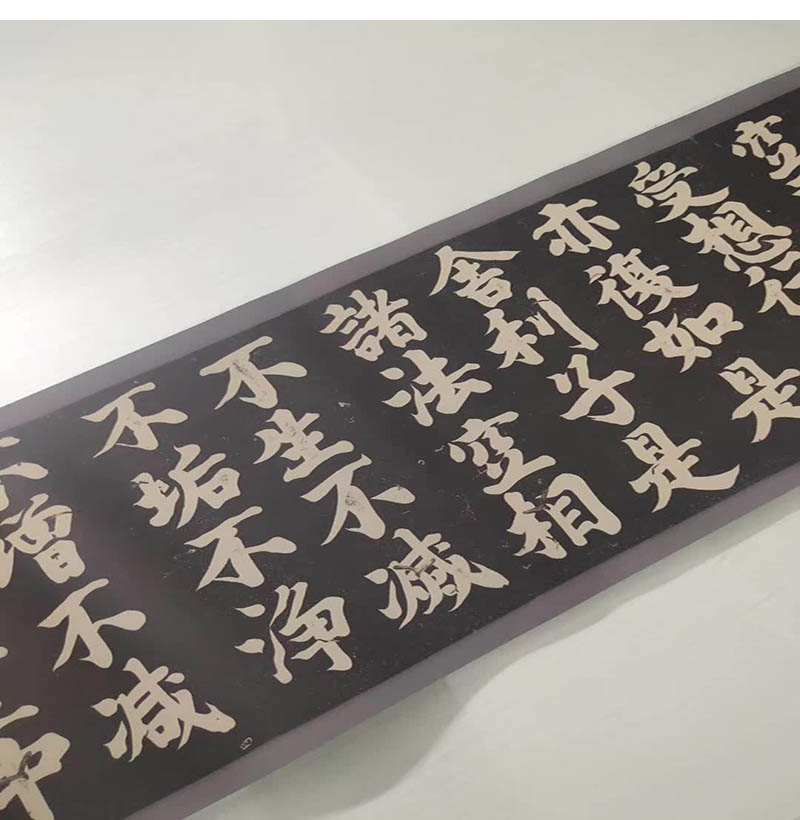 空
受想行
亦復如是
舍利子是
諸法空相
不生不滅
不垢不淨
不增不減
中